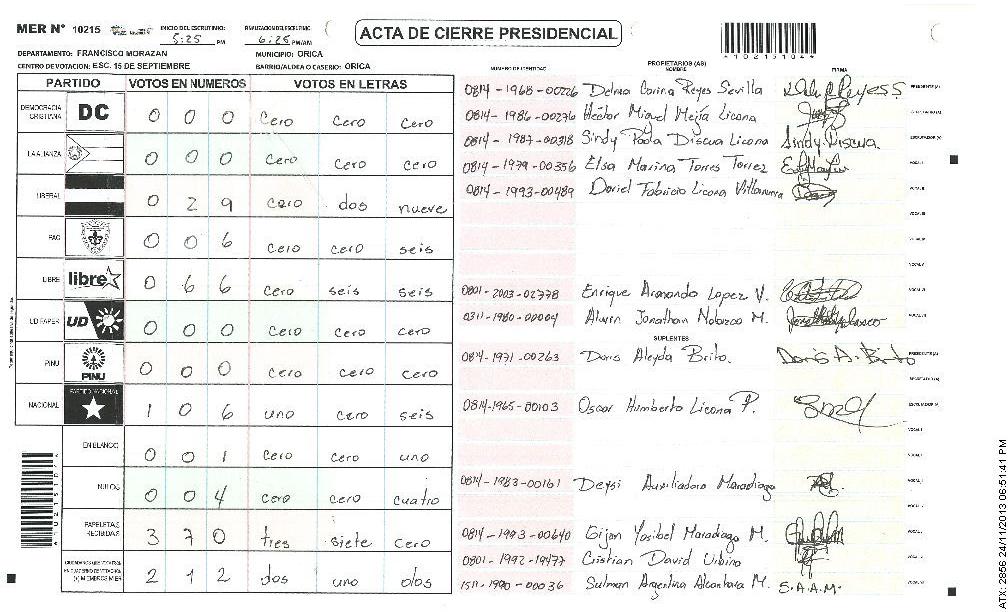 MER N° 10215 INICIO DEL ESCRUTINIO: 5:25 PM 6:25 PM/AM ACTA DE CIERRE PRESIDENCIAL
DEPARTAMENTO: FRANCISCO MORAZAN MUNICIPIO: ORICA
CENTRO DE VOTACION: ESC. 15 DE SEPTIEMBRE BARRIO/ALDEA O CASERIO: ORICA
NUMERO DE IDENTIDAD PROPIETARIOS (AS) NOMBRE FIRMA
PARTIDO VOTOS EN NUMEROS VOTOS EN LETRAS
DEMOCRACIA CRISTIANA DC 0 0 0 cero cero cero
LA ALIANZA 0 0 0 cero cero cero
LIBERAL 0 2 9 cero dos nueve
PAC 0 0 6 cero cero seis
LIBRE libre 0 6 6 cero seis seis
UD FAPER UD 0 0 0 cero cero cero
PINU PINU 0 0 0 cero cero cero
NACIONAL PARTIDO NACIONAL 1 0 6 uno cero seis
EN BLANCO 0 0 1 cero cero uno
NULOS 0 0 4 cero cero cuatro
PAPELETAS RECIBIDAS 3 7 0 tres siete cero
2 1 2 dos uno dos
0814-1968-00226 Delma Corina Reyes Sevilla
0814-1986-00276 Héctor Miguel Mejía Licona
0814-1987-00318 Sindy Paola Discua Licona Sindy Discua
0814-1979-00356 Elsa Marina Torres Torrez
0814-1993-00489 Dariel Fabricio Licona Villanueva
0801-2003-02778 Enrique Armando Lopez V.
0311-1980-00004 Jonathan M.
SUPLENTES
0814-1971-00263 Doris Aleyda Brito. Doris A. Brito
0814-1965-00103 Oscar Humberto Licona P.
0814-1983-00161 Deysi Auxiliadora Maradiaga
0814-1993-00640 Yosibel Maradiaga M.
0801-1992-19477 Cristian David
1511-1990-00036 Sulman Argentina Alcantara M. S.A.A.M.
ATX-2956 24/11/2013 06:51:41 PM